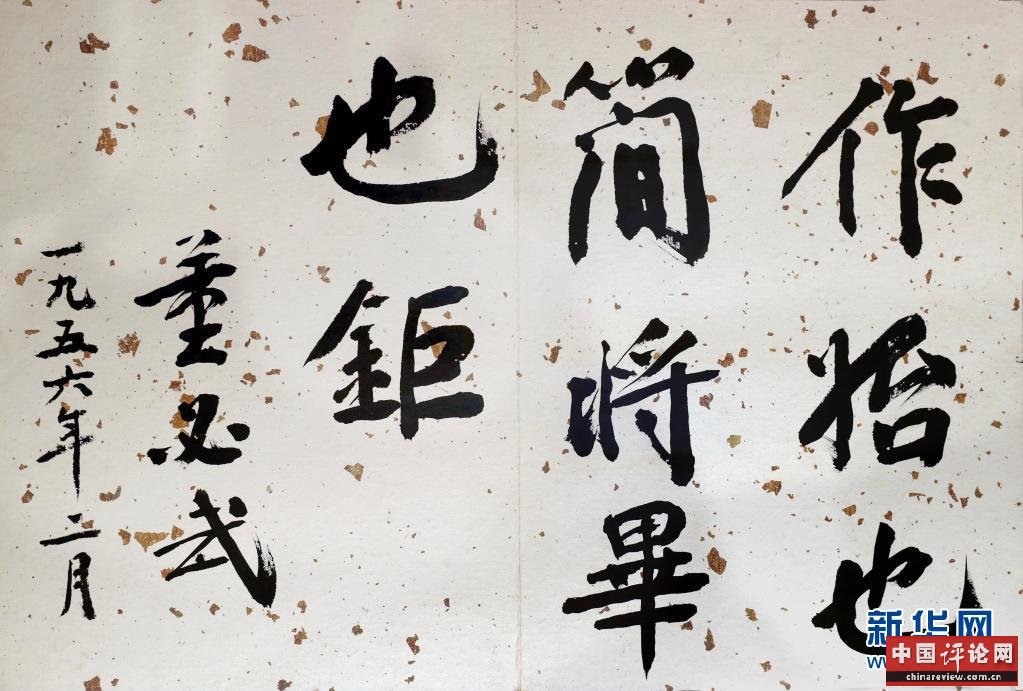 作始也
簡將畢
也鉅
董必武
一九五六年二月
新华网
中国评论网
chinareview.com.cn